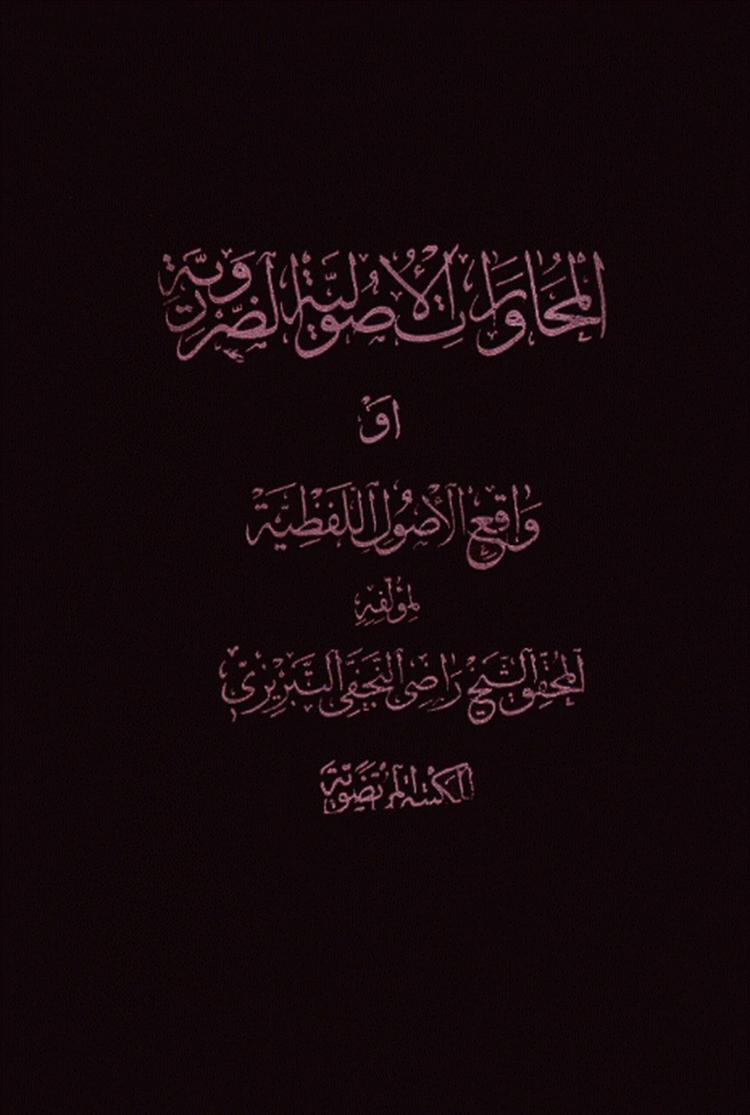 المحاورات الأصولية الضرورية
أو
واقع الأصول اللفظية
لمؤلفه
المحقق الشيخ راضي النجفي التبريزي
المكتبة المرتضوية